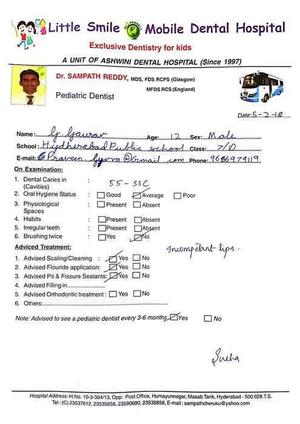 Little Smile Mobile Dental Hospital
Exclusive Dentistry for kids
A UNIT OF ASHWINI DENTAL HOSPITAL (Since 1997)
Dr. SAMPATH REDDY, MDS, FDS RCPS (Glasgow)
MFDS RCS (England)
Pediatric Dentist
Date: 5-2-18
Name: G. Gaurav Age: 12 Sex: Male
School: Hydherabad Public school Class: 7/D
E-mail: @gmail.com Phone: 9666974119
On Examination:
1. Dental Caries in (Cavities) 55 - SSC
2. Oral Hygiene Status : Good Average Poor
3. Physiological Spaces : Present Absent
4. Habits : Present Absent
5. Irregular teeth : Present Absent
6. Brushing twice : Yes No
Incompetent lips.
Adviced Treatment:
1. Advised Scaling/Cleaning : Yes No
2. Advised Flouride application: Yes No
3. Advised Pit & Fissure Sealants: Yes No
4. Advised Filling in
5. Advised Orthodontic treatment : Yes No
6. Others:
Note: Advised to see a pediatric dentist every 3-6 months Yes No
Hospital Address: H.No. 10-3-304/13, Opp: Post Office, Humayunnagar, Masab Tank, Hyderabad - 500 028.T.S.
Tel : (C) 23537612, 23535656, 23590680, 23536856, E-mail : sampathcheruku@yahoo.com